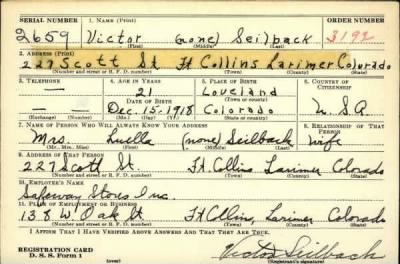 SERIAL NUMBER 1. NAME (Print) ORDER NUMBER
2659 Victor (none) Seilback 3192
(First) (Middle) (Last)
2. ADDRESS (Print)
227 Scott St Ft Collins Larimer Colorado
(Number and street or R. F. D. number) (Town) (County) (State)
3. TELEPHONE 4. AGE IN YEARS 5. PLACE OF BIRTH 6. COUNTRY OF CITIZENSHIP
— 21 Loveland
DATE OF BIRTH (Town or county)
— — Dec. 15, 1918 Colorado U.S.A.
(Exchange) (Number) (Mo.) (Day) (Yr.) (State or country)
7. NAME OF PERSON WHO WILL ALWAYS KNOW YOUR ADDRESS 8. RELATIONSHIP OF THAT PERSON
Mrs. (none) Seilback wife
(Mr., Mrs., Miss) (First) (Middle) (Last)
9. ADDRESS OF THAT PERSON
227 Scott St. Ft. Collins Larimer Colorado
(Number and street or R. F. D. number) (Town) (County) (State)
10. EMPLOYER'S NAME
Safeway Stores Inc.
11. PLACE OF EMPLOYMENT OR BUSINESS
138 W. Oak St Ft Collins, Larimer Colorado
(Number and street or R. F. D. number) (Town) (County) (State)
I AFFIRM THAT I HAVE VERIFIED ABOVE ANSWERS AND THAT THEY ARE TRUE.
REGISTRATION CARD
D. S. S. Form 1 (over) Victor Seilback
(Registrant's signature)